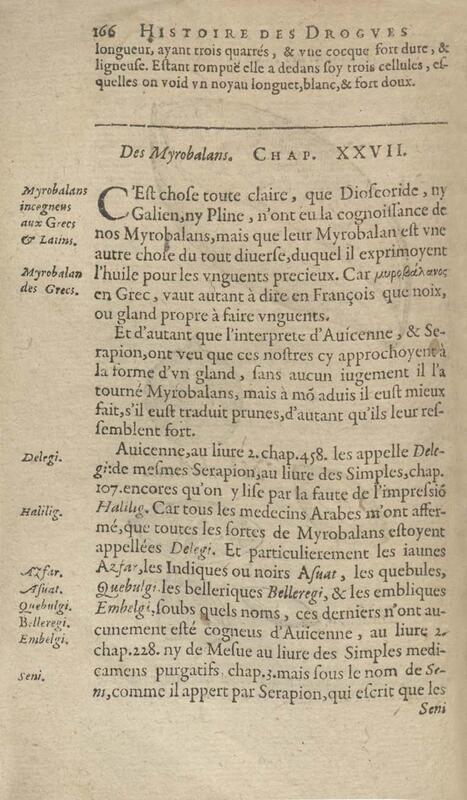 166 HISTOIRE DES DROGVES
longueur, ayant trois quarrés, & vne cocque fort dure, &
ligneuse. Estant rompuë elle a dedans soy trois cellules, es-
quelles on void vn noyau longuet, blanc, & fort doux.
Des Myrobalans. CHAP. XXVII.
Myrobalans
incogneus
aux Grecs
& Latins.
C'Est chose toute claire, que Dioscoride, ny
Galien, ny Pline, n'ont eu la cognoissance de
nos Myrobalans, mais que leur Myrobalan est vne
autre chose du tout diuerse, duquel il exprimoyent
Myrobalan
des Grecs.
l'huile pour les vnguents precieux. Car μυροβάλανος
en Grec, vaut autant à dire en François que noix,
ou gland propre à faire vnguents.
Et d'autant que l'interprete d'Auicenne, & Se-
rapion, ont veu que ces nostres cy approchoyent à
la forme d'vn gland, sans aucun iugement il l'a
tourné Myrobalans, mais à mõ aduis il eust mieux
fait, s'il eust traduit prunes, d'autant qu'ils leur res-
semblent fort.
Delegi.
Auicenne, au liure 2. chap. 458. les appelle Dele-
gi: de mesmes Serapion, au liure des Simples, chap.
107. encores qu'on y lise par la faute de l'impressiõ
Halilig.
Halilig. Car tous les medecins Arabes m'ont affer-
mé, que toutes les sortes de Myrobalans estoyent
appellées Delegi. Et particulierement les iaunes
Azfar.
Azfar, les Indiques ou noirs Asuat, les quebules,
Asuat.
Quebulgi.
Quebulgi. les belleriques Belleregi, & les embliques
Belleregi.
Embelgi, soubs quels noms, ces derniers n'ont au-
Embelgi.
cunement esté cogneus d'Auicenne, au liure 2.
chap. 228. ny de Mesue au liure des Simples medi-
Seni.
camens purgatifs, chap. 3. mais sous le nom de Se-
ni, comme il appert par Serapion, qui escrit que les
Seni